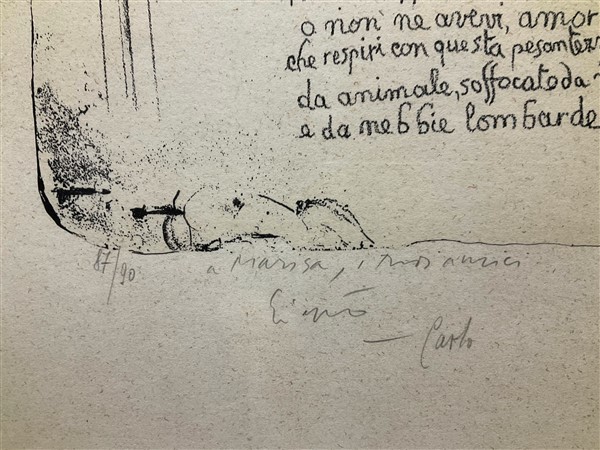 o non ne avevi, amor
che respiri con questa pesantezz
da animale, soffocato da
e da nebbie lombarde
87/90 a Marisa, i tuoi amici
— Carlo